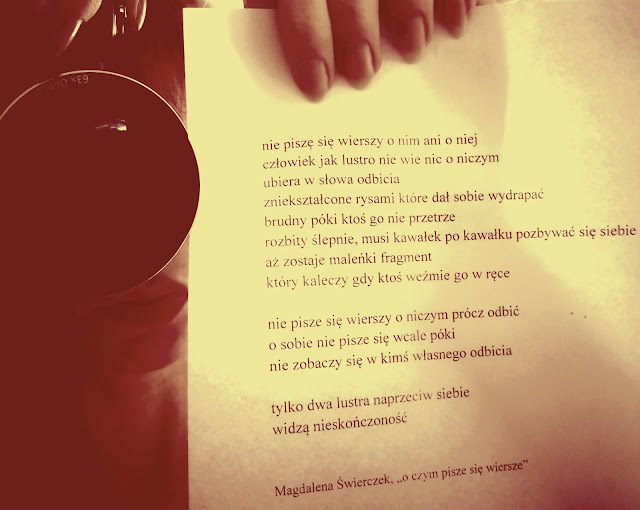 nie piszę się wierszy o nim ani o niej
człowiek jak lustro nie wie nic o niczym
ubiera w słowa odbicia
zniekształcone rysami które dał sobie wydrapać
brudny póki ktoś go nie przetrze
rozbity ślepnie, musi kawałek po kawałku pozbywać się siebie
aż zostaje maleńki fragment
który kaleczy gdy ktoś weźmie go w ręce

nie pisze się wierszy o niczym prócz odbić
o sobie nie pisze się wcale póki
nie zobaczy się w kimś własnego odbicia

tylko dwa lustra naprzeciw siebie
widzą nieskończoność

Magdalena Świerczek, „o czym pisze się wiersze”